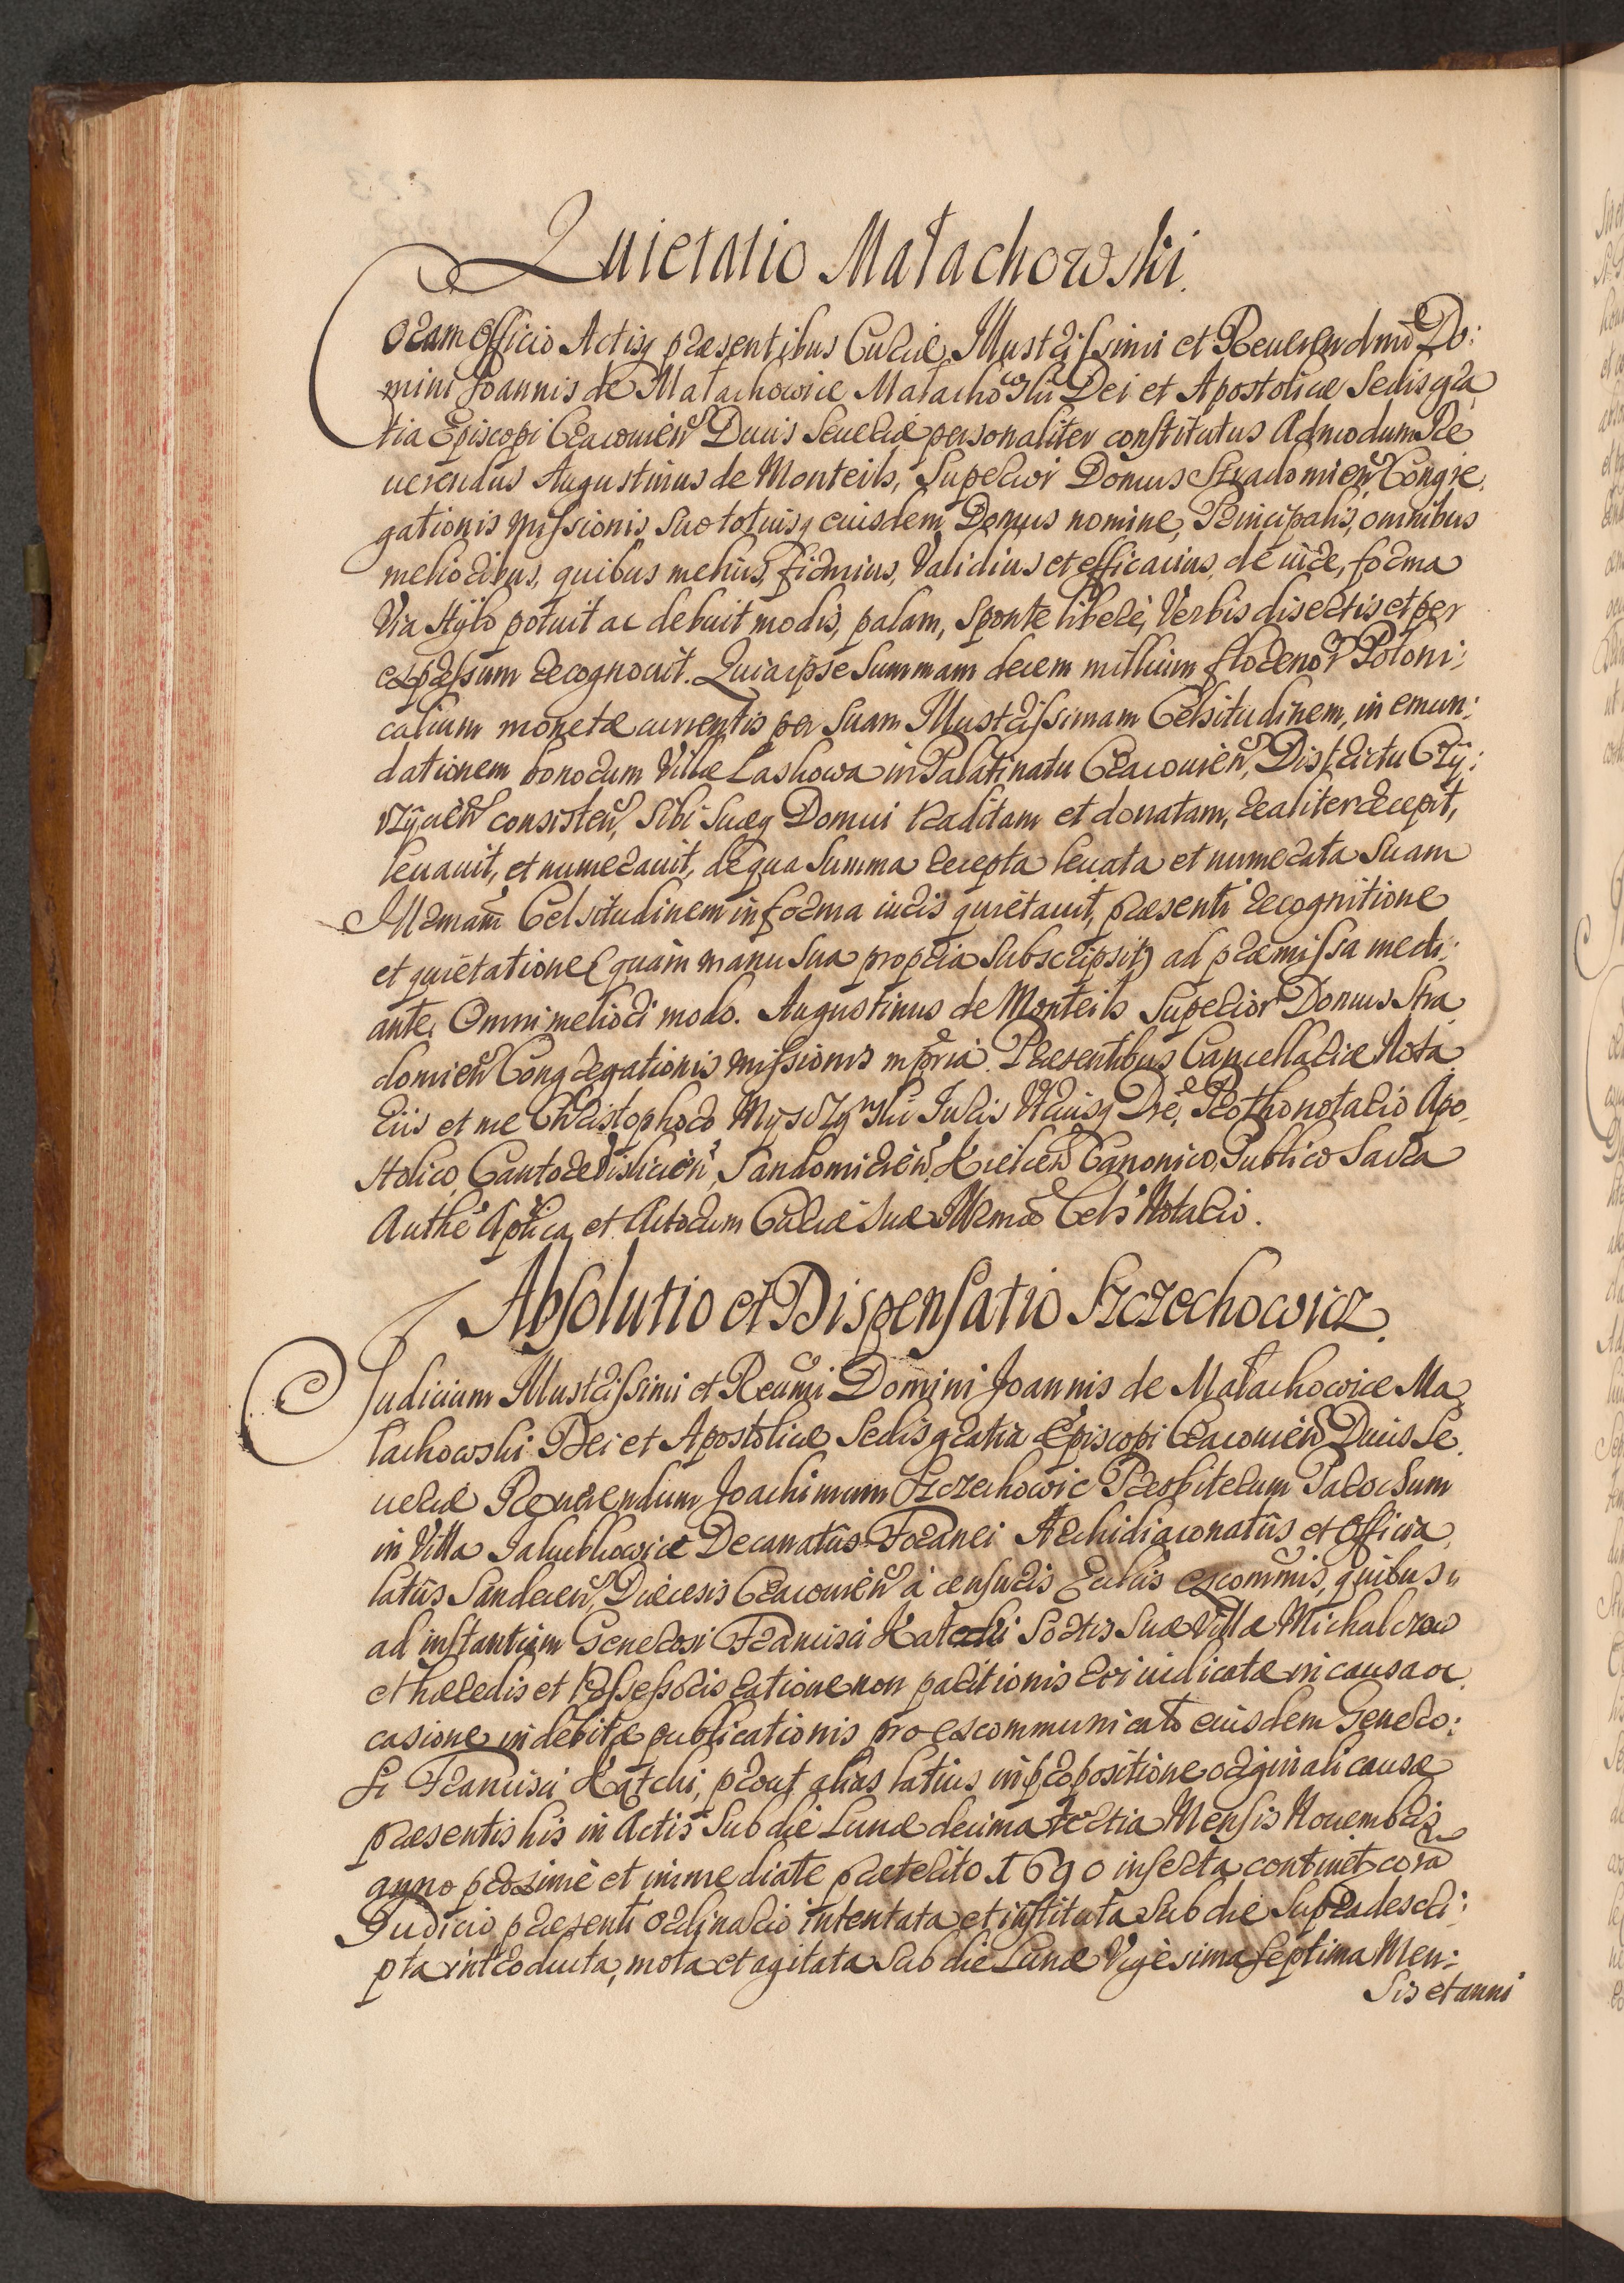 Quietatio Małachowski.
Coram Officio Actisq praesentibus Curiae Illustrissimi et Reuerendmi Do:
mini Joannis de Małachowice Małachowski Dei et Apostolicae Sedis gra
tia Episcopi Cracouien Ducis Seueriae personaliter constitutus Admodum Re
uerendus Augustinus de Monteils, Superior Domus Stradomien Congre
gationis Missionis, suo totiusq eiusdem Domus nomine, Principalis, omnibus
melioribus, quibus melius, firmius, validius et efficacius, de iure, forma
via stylo potuit ac debuit modis, palam, sponte libere, verbis disertis et per
expressum recognouit. Quia ipse Summam decem millium florenor Poloni:
calium monetae currentis per Suam Illustrissimam Celsitudinem, in emun:
dationem bonorum Villae Laskowa in Palatinatu Cracouien, Districtu Czy:
rzycen consisten, sibi suaeq Domui traditam et donatam, realiter recepit,
leuauit, et numerauit, de qua Summa recepta leuata et numerata Suam
Illrmam Celsitudinem in forma iuris quietauit, praesenti recognitione
et quietatione (quam manu sua propria subscripsit) ad praemissa medi:
ante, Omni meliori modo. Augustinus de Monteils Superior Domus Stra
domien Congregationis Missionis mpria. Praesentibus Cancellariae Nota
riis et me Christophoro Myszynski Juris Vtriusq Dre, Prothonotario Apo
stolico, Cantore Vislicien, Sandomirien, Kielcen Canonico, Publico Sacra
Authe Aplica, et Actorum Curiae Suae Illrmae Cels Notario.
Absolutio et Dispensatio Szczechowicz.
Judicium Illustrissimi et Reumi Domini Joannis de Małachowice Ma
łachowski Dei et Apostolicae Sedis gratia Episcopi Cracouien Ducis Se
ueriae Reuerendum Joachimum Szczechowic Presbiterum Parochum
in Villa Jakubkowice Decanatus Foranei Archidiaconatus et Officia
latus Sandecen, Diaecesis Cracouien a censuris Ecclis excommis, quibus
ad instantiam Generosi Francisci Katski Sortis Suae Villae Michalczowa
et haeredis et Possessoris ratione non paritionis rei iudicatae in causa oc
casione indebitae publicationis pro excommunicato eiusdem Genero:
si Francisci Katski, prout alias latius in propositione originali causae
praesentis his in Actis sub die Lunae decima tertia Mensis Nouembris
anno proxime et immediate praeterito 1690 inserta continet cora
Judicio praesenti ordinario intentata et instituta sub die supradescri:
pta introducta, mota et agitata sub die Lunae Vigesima septima Men:
sis et anni